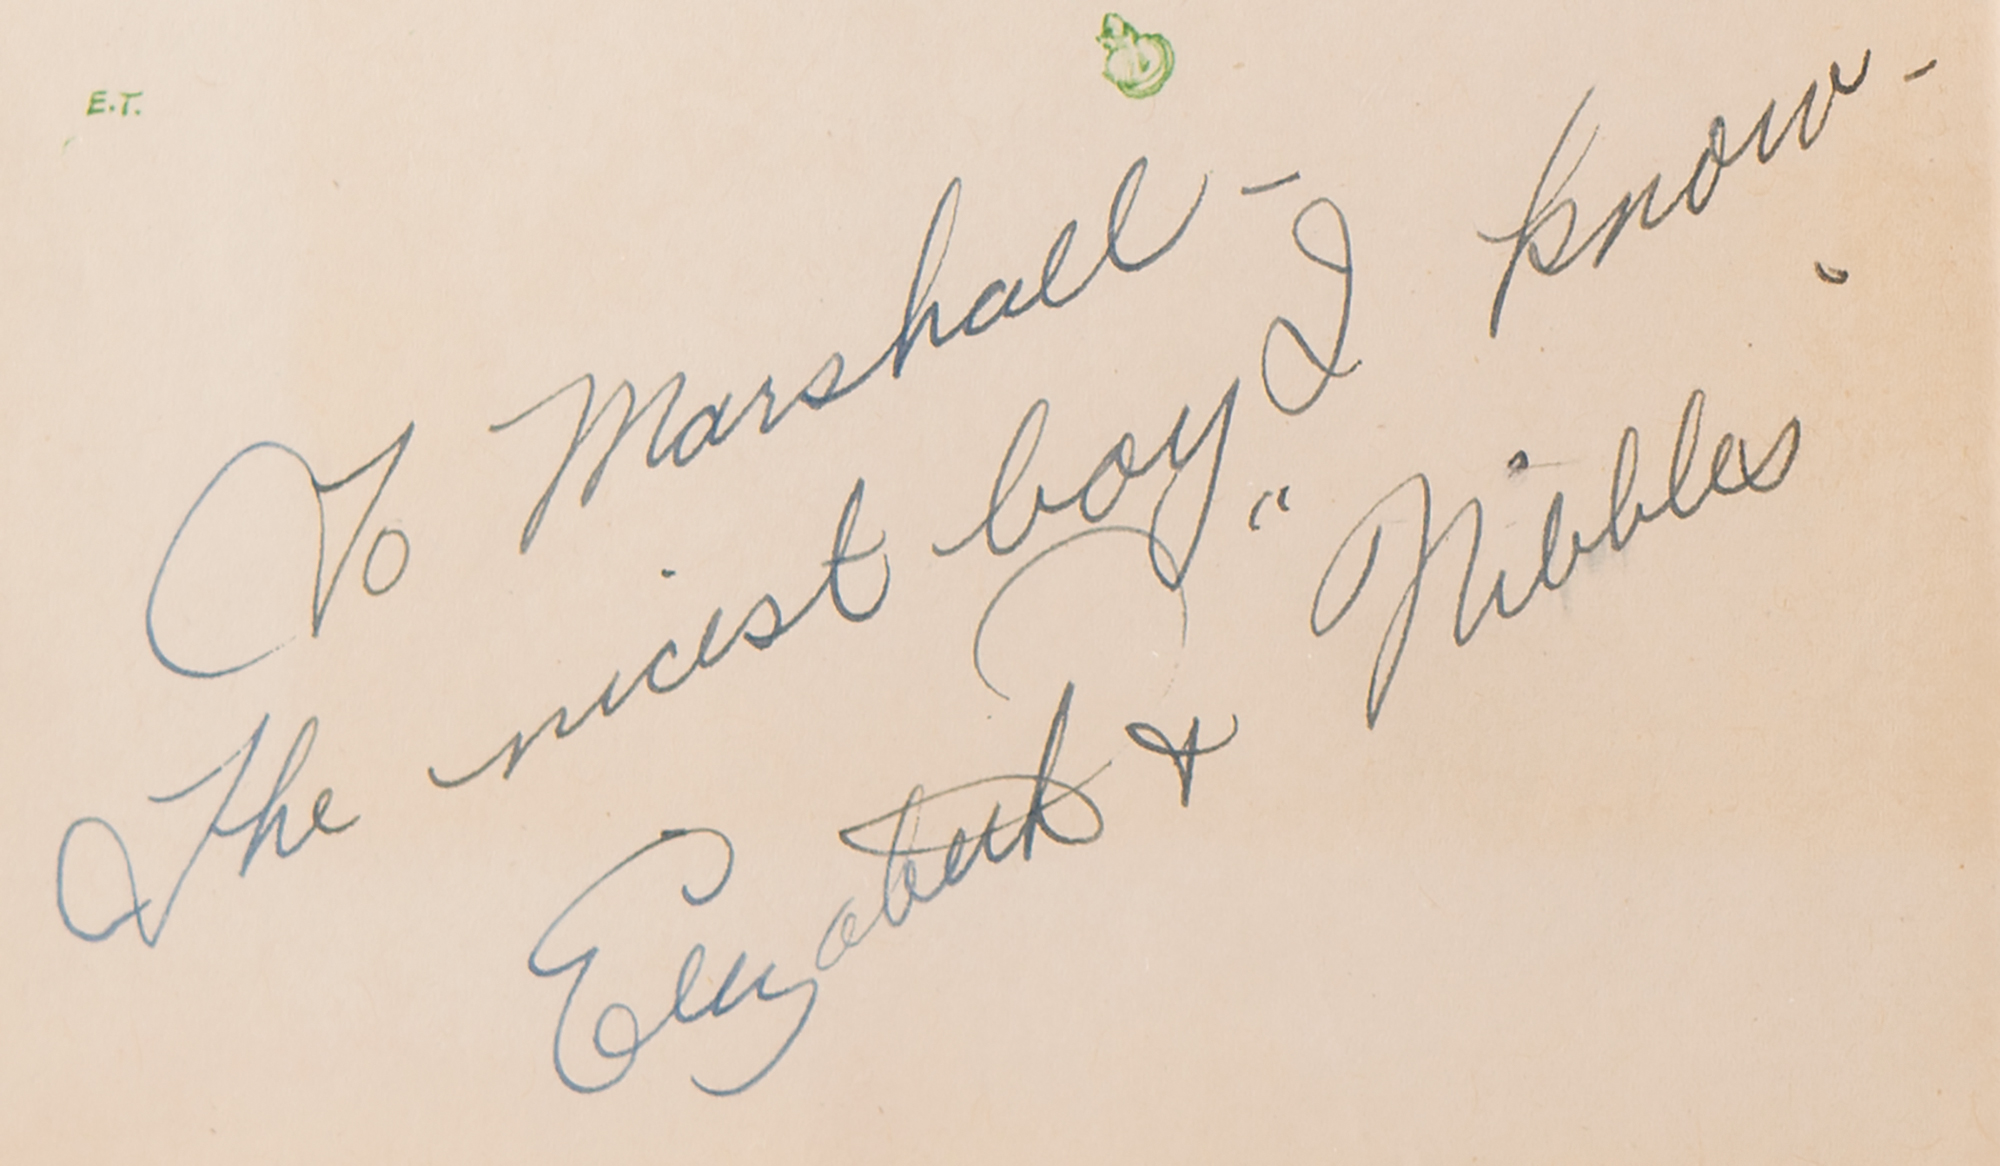 E.T.
To Marshall -
The nicest boy I know -
Elizabeth & "Nibbles"